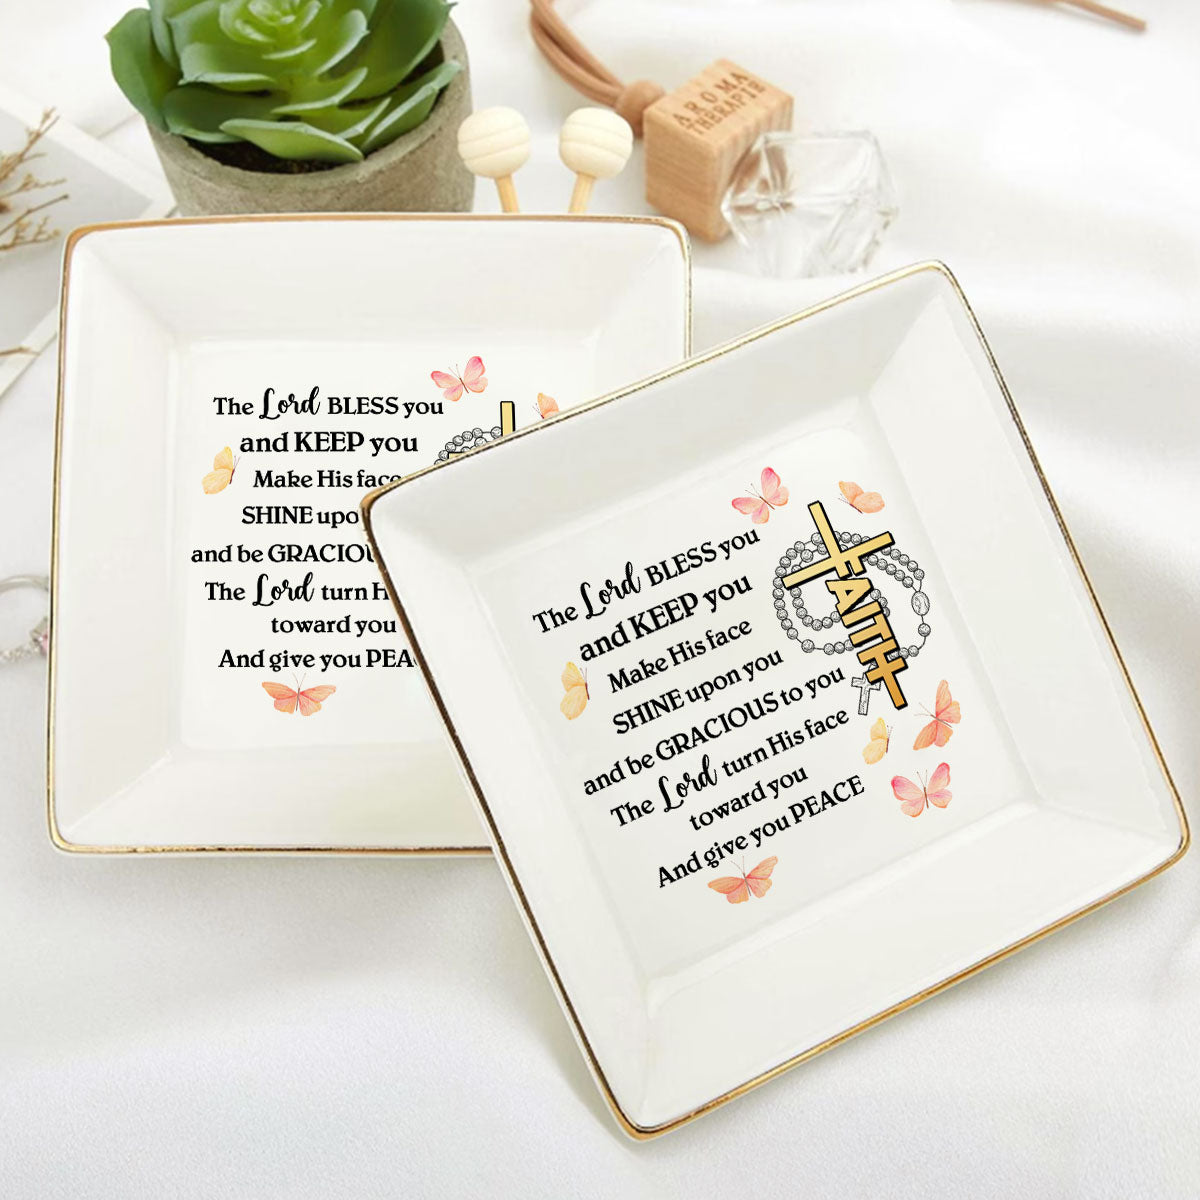 AROMA
THERAPIE
The Lord BLESS you
and KEEP you
Make His face
SHINE upo
and be GRACIOU
The Lord turn H
toward you
And give you PEA
The Lord BLESS you
and KEEP you
Make His face
SHINE upon you
and be GRACIOUS to you
The Lord turn His face
toward you
And give you PEACE
FAITH